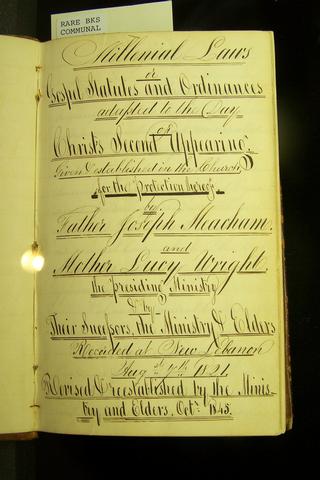 RARE BKS
COMMUNAL
Millenial Laws
or
Gospel Statutes and Ordinances
adapted to the Day
of
Christ's Second Appearing.
Given & established in the Church
for the Protection thereof
by
Father Joseph Meacham.
and
Mother Lucy Wright.
the presiding Ministry
& by
Their Sucessors, the Ministry & Elders
Recorded at New Lebanon
Augst 7th 1821.
Revised & reestablished by the Minis-
try and Elders, Octr 1845.